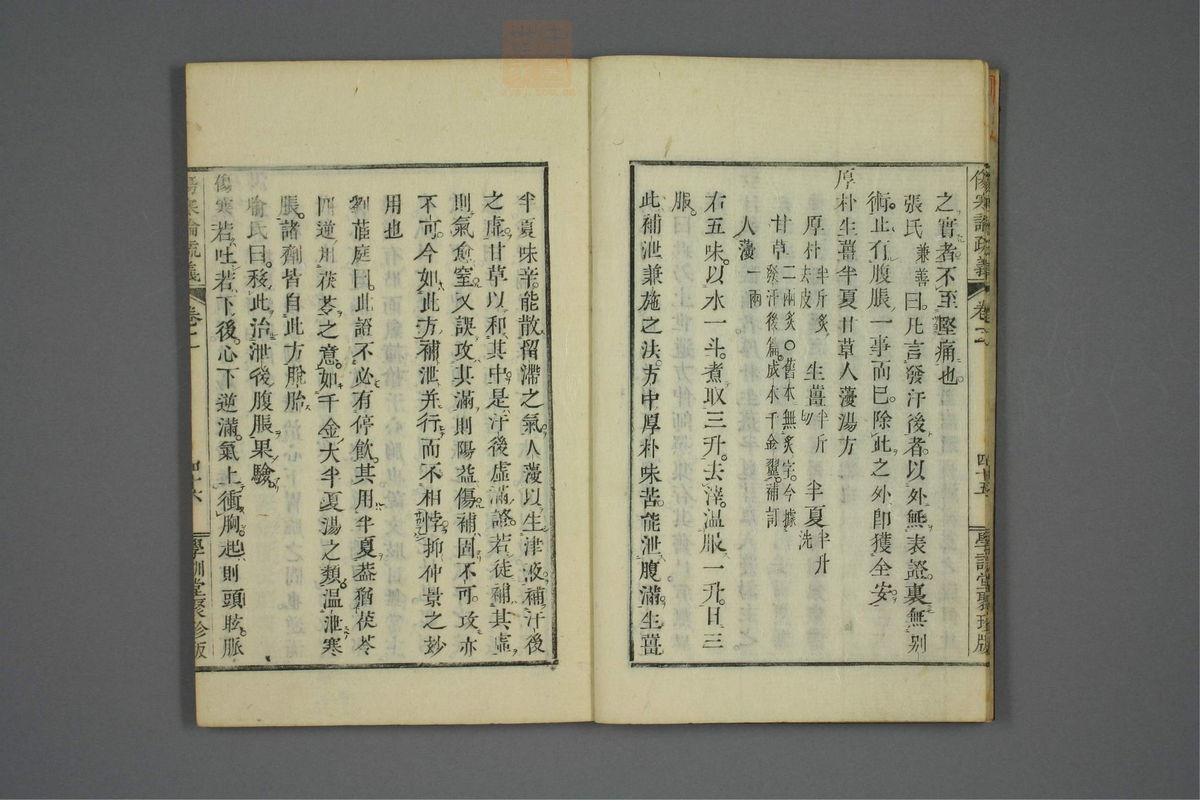 傷寒論疏義 卷之二 四十五 學訓堂聚珍版
之實者不至堅痛也。
張氏兼善曰。凡言發汗後者。以外無表證。裏無別
術。止有腹脹一事而已。除此之外。即獲全安。
厚朴生薑半夏甘草人薓湯方
厚朴半斤炙去皮 生薑半斤切 半夏半升洗
甘草二兩炙〇舊本無炙字。今據發汗後篇。成本千金翼。補訂
人薓一兩
右五味。以水一斗。煮取三升。去滓。溫服一升。日三
服。
此補泄兼施之法。方中厚朴味苦。能泄腹滿。生薑
半夏味辛。能散留滯之氣。人薓以生津液。補汗後
之虛。甘草以和其中。是汗後虛滿諮。若徒補其虛
則氣愈窒。又誤攻其滿則陽益傷。補固不可。攻亦
不可。今如此方。補泄并行。而不相悖。抑仲景之妙
用也
劉茝庭曰。此證不必有停飲。其用半夏。葢猶茯苓
四逆用茯苓之意。如千金大半夏湯之類。溫泄寒
脹。諸劑皆自此方脫胎
喻氏曰。移此治泄後腹脹果驗。
傷寒若吐若下後。心下逆滿。氣上衝胸。起則頭眩。脈
傷寒論疏義 卷之二 四十六 學訓堂聚珍版